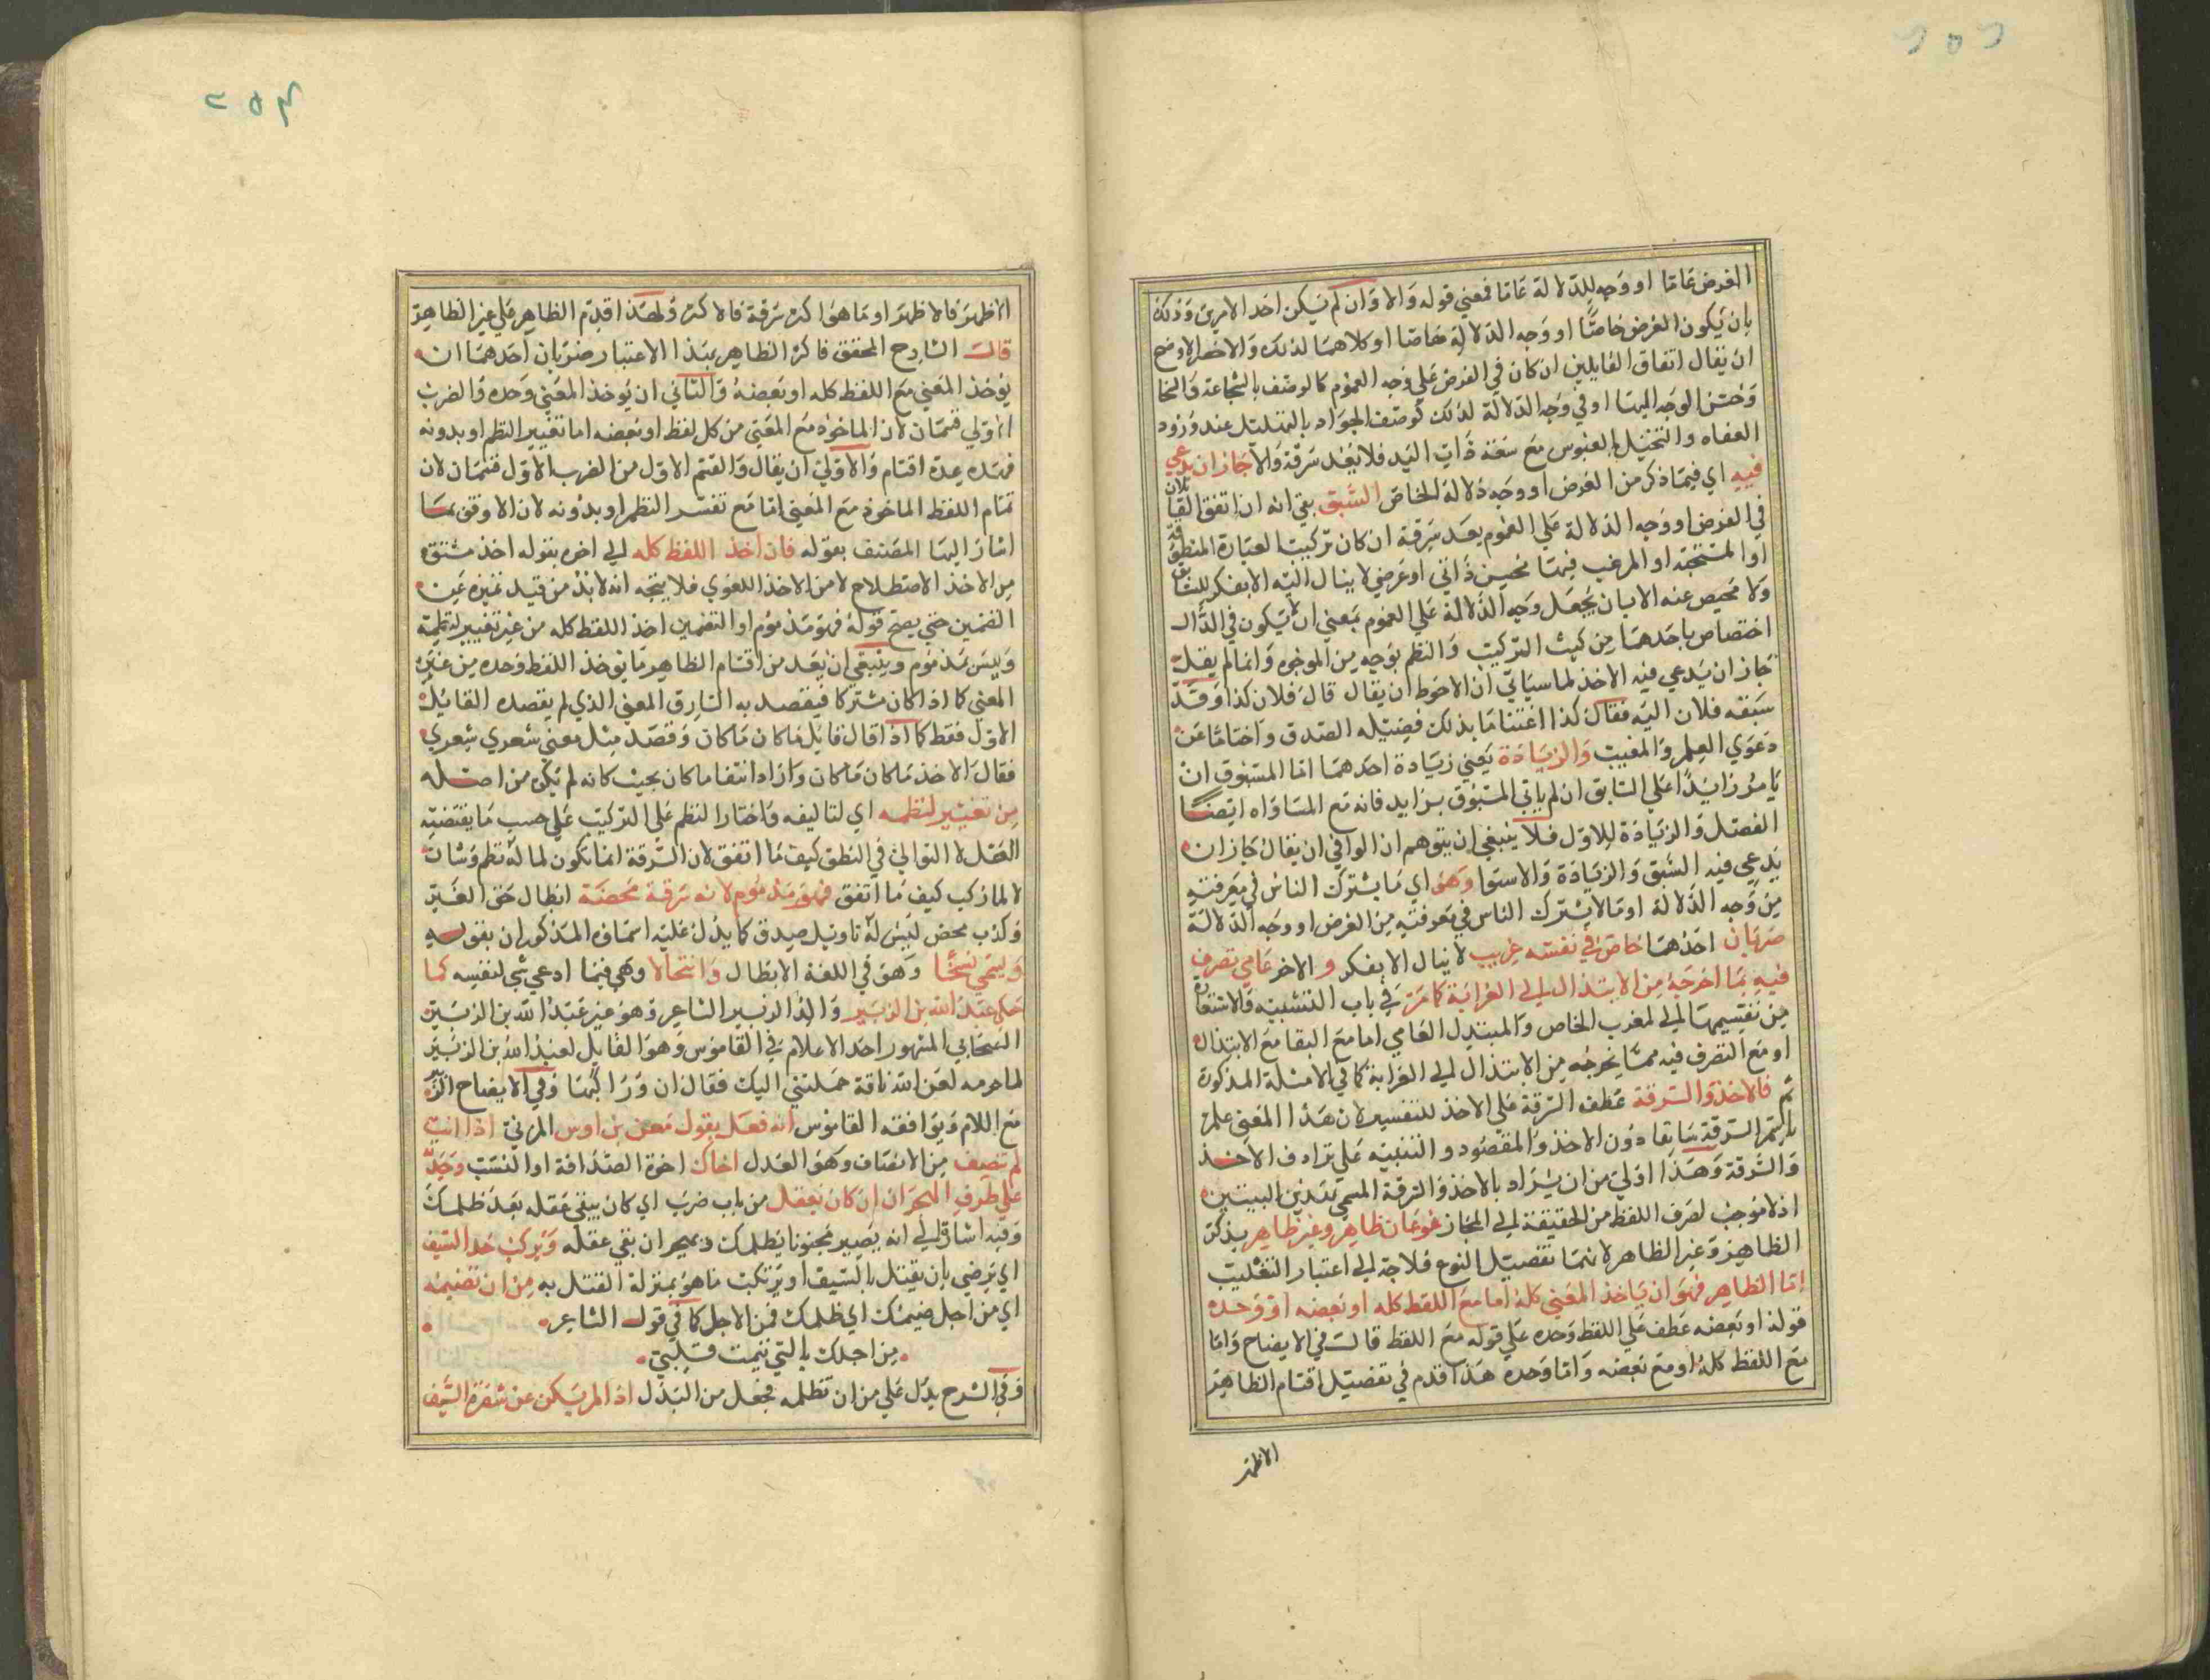 الغرض عاما او وجه للدلالة عاما فمعني قوله والا وان لم يكن احد الامرين وذلك
بان يكون الغرض خاصا او وجه الدلالة خاصا او كلاهما لذلك والاخصر الاوضح
ان يقال اتفاق القايلين ان كان في الغرض علي وجه العموم كالوصف بالشجاعة والسخا
وحسن الوجه البها او في وجه الدلالة لذلك كوصف الجواد بالتهلل عند ورود
العفاه والبخيل بالعبوس مع سعة ذات اليد فلا يعد سرقة والا جاز ان يدعي
فيه اي فيما ذكر من الغرض او وجه دلالة الخاص السبق بقي انه ان اتفق القايلان
في الغرض او وجه الدلالة علي العموم يعد سرقة ان كان تركيب العبارة المنطبقة
او المستحبة او المرغب فيهما محيص ذاتي او عرضي لا ينال اليه الا بفكر للشاعر
ولا محيص عنه الا بان يجعل وجه الدلالة علي العموم بمعني ان لا يكون في الدال
اختصاص باحدهما من حيث التركيب والنظم بوجه من الوجوه وانما لم يقل
جاز ان يدعي فيه الاخذ لما سياتي ان الاحوط ان يقال قال فلان كذا وقد
سبقه فلان اليه فقال كذا اغتناما بذلك فضيلة الصدق واختاما عن
دعوي العلم والمغيب والزيادة يعني زيادة احدهما اما المسبوق ان
يامر زايدا علي السابق ان لم ياتي المسبوق بزايد فانه مع المساواه ايضا
الفضل والزيادة للاول فلا ينبغي ان يتوهم ان الوافي ان يقال جاز ان
يدعي فيه السبق والزيادة والاستوا وهو اي ما يشترك الناس في معرفته
من وجه الدلالة او ما لا يشترك الناس في معرفته من الغرض او وجه الدلالة
ضربان احدهما خاص في نفسه غريب لا ينال الا بفكر والاخر عامي تصرف
فيه بما اخرجه من الابتذال الي الغرابة كما مر في باب التشبيه والاستعارة
من تقسيمهما الي الغريب الخاص والمبتذل العامي اما مع البقا مع الابتذال
او مع التصرف فيه مما يخرجه من الابتذال الي الغرابة كما في الامثلة المذكورة
ثم فالاخذ والسرقة عطف السرقة علي الاخذ للتفسير لان هذا المعني علم
باسم السرقة سابقا دون الاخذ والمقصود والتنبيه علي ترادف الاخذ
والسرقة وهذا اولي من ان يراد بالاخذ والسرقة المسمي بهذين البيتين
اذ لا موجب لصرف اللفظ من الحقيقة الي المجاز نوعان ظاهر وغير ظاهر يذكر
الظاهر وغير الظاهر لانهما تفصيل النوع فلا جه الي اعتبار التغليب
اما الظاهر فهو ان ياخذ المعني كله اما مع اللفظ كله او بعضه او وحده
قوله او بعضه عطف علي اللفظ وحده علي قوله مع اللفظ قالت في الايضاح واما
مع اللفظ كله او مع بعضه واما وحده هذا قدم في تفصيل اقسام الظاهر
الاظهر
٢٥٣
الاظهر فالاظهر او ما هو اكثر سرقة فالاكثر ولهذا قدم الظاهر علي غير الظاهر
قالت الشارح المحقق فاكثر الظاهر بهذا الاعتبار ضربان احدهما ان
يوخذ المعني مع اللفظ كله او بعضه والثاني ان يوخذ المعني وحده والضرب
الاولي قسمان لان الماخوذ مع المعني من كل لفظ او بعضه اما تغيير النظم او بدونه
فهذه عدة اقسام والاولي ان يقال والقسم الاول من الضرب الاول قسمان لان
تمام اللفظ الماخوذ مع المعني اما مع تفسر النظم او بدونه لان الاوفق بما
اشار اليها المصنف بقوله فان اخذ اللفظ كله الي اخره بقوله اخذ مشتق
من الاخذ الاصطلاح لا من الاخذ اللغوي فلا يتجه انه لابد من قيد نميزه عن
الضمين حتي يصح قوله فهو مذموم او التضمين اخذ اللفظ كله من غير تغيير لنظمه
وليس مذموم وينبغي ان يعد من اقسام الظاهر ما يوخذ اللفظ وحده من غير
المعني كما اذا كان مشتركا فيقصد به السارق المعني الذي لم يقصده القايل
الاول فقط كما اذا قال قايل ما كان ما كان وقصد مثل معني شعري شعري
فقال الاخذ ما كان ما كان واراد انتفا ما كان بحيث كانه لم يكن من اصله
من تغيير لنظمه اي لتاليفه واختار النظم علي التركيب علي حسب ما يقتضيه
العقل لا التوالي في النطق كيف ما اتفق لان السرقة انما تكون لما له نظم وشان
لا لما ركب كيف ما اتفق فهو مذموم لانه سرقة محضة ابطال حق الغير
وكذب محض ليس له تاويل صدق كما يدل عليه اسماؤه المذكور ان بقوله
ويسمي نسخا وهو في اللغة الابطال وانتحالا وهي فيما ادعي شي لنفسه كما
حكي عبد الله بن الزبير والد الزبير الشاعر وهو غير عبد الله بن الزبير
الصحابي المشهور احد الاعلام في القاموس وهو القايل لعبد الله بن الزبير
لما حرمه لعن الله ناقة حملتني اليك فقال ان وراكبها وفي الايضاح الزبير
مع اللام ويوافقه القاموس انه فعل بقول معن بن اوس المزني اذا انت
لم تنصف من الانصاف وهو العدل اخاك اخوة الصداقة او النسب وجدته
علي طرف الهجران ان كان يعقل من باب ضرب اي كان يبقي عقله بعد ظلمك
وفيه اشارة الي انه يصير مجنونا بظلمك ويهجر ان بقي عقله ويركب حد السيف
اي يرضي بان يقتل بالسيف او يرتكب ما هو بمنزلة القتل به من ان تضيمه
اي من اجل ضيمك اي ظلمك فمن الاجل كما في قول الشاعر
من اجلك يا التي تيمت قلبي
وفي الشرح بدل علي من ان تظلمه فجعل من البدل اذا لم يكن عن شفرة السيف